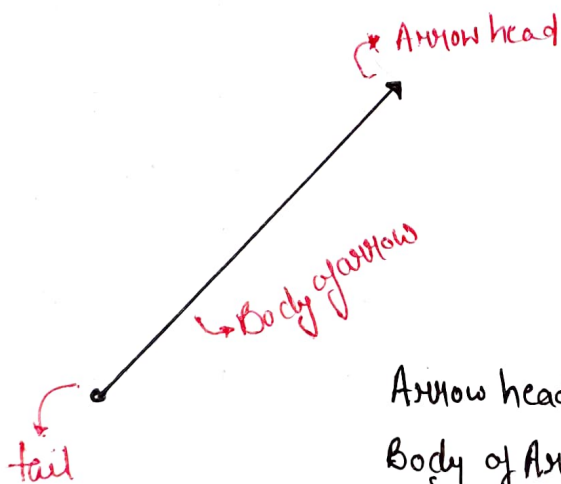 Arrow head
Body of arrow
tail
Arrow head
Body of Ar